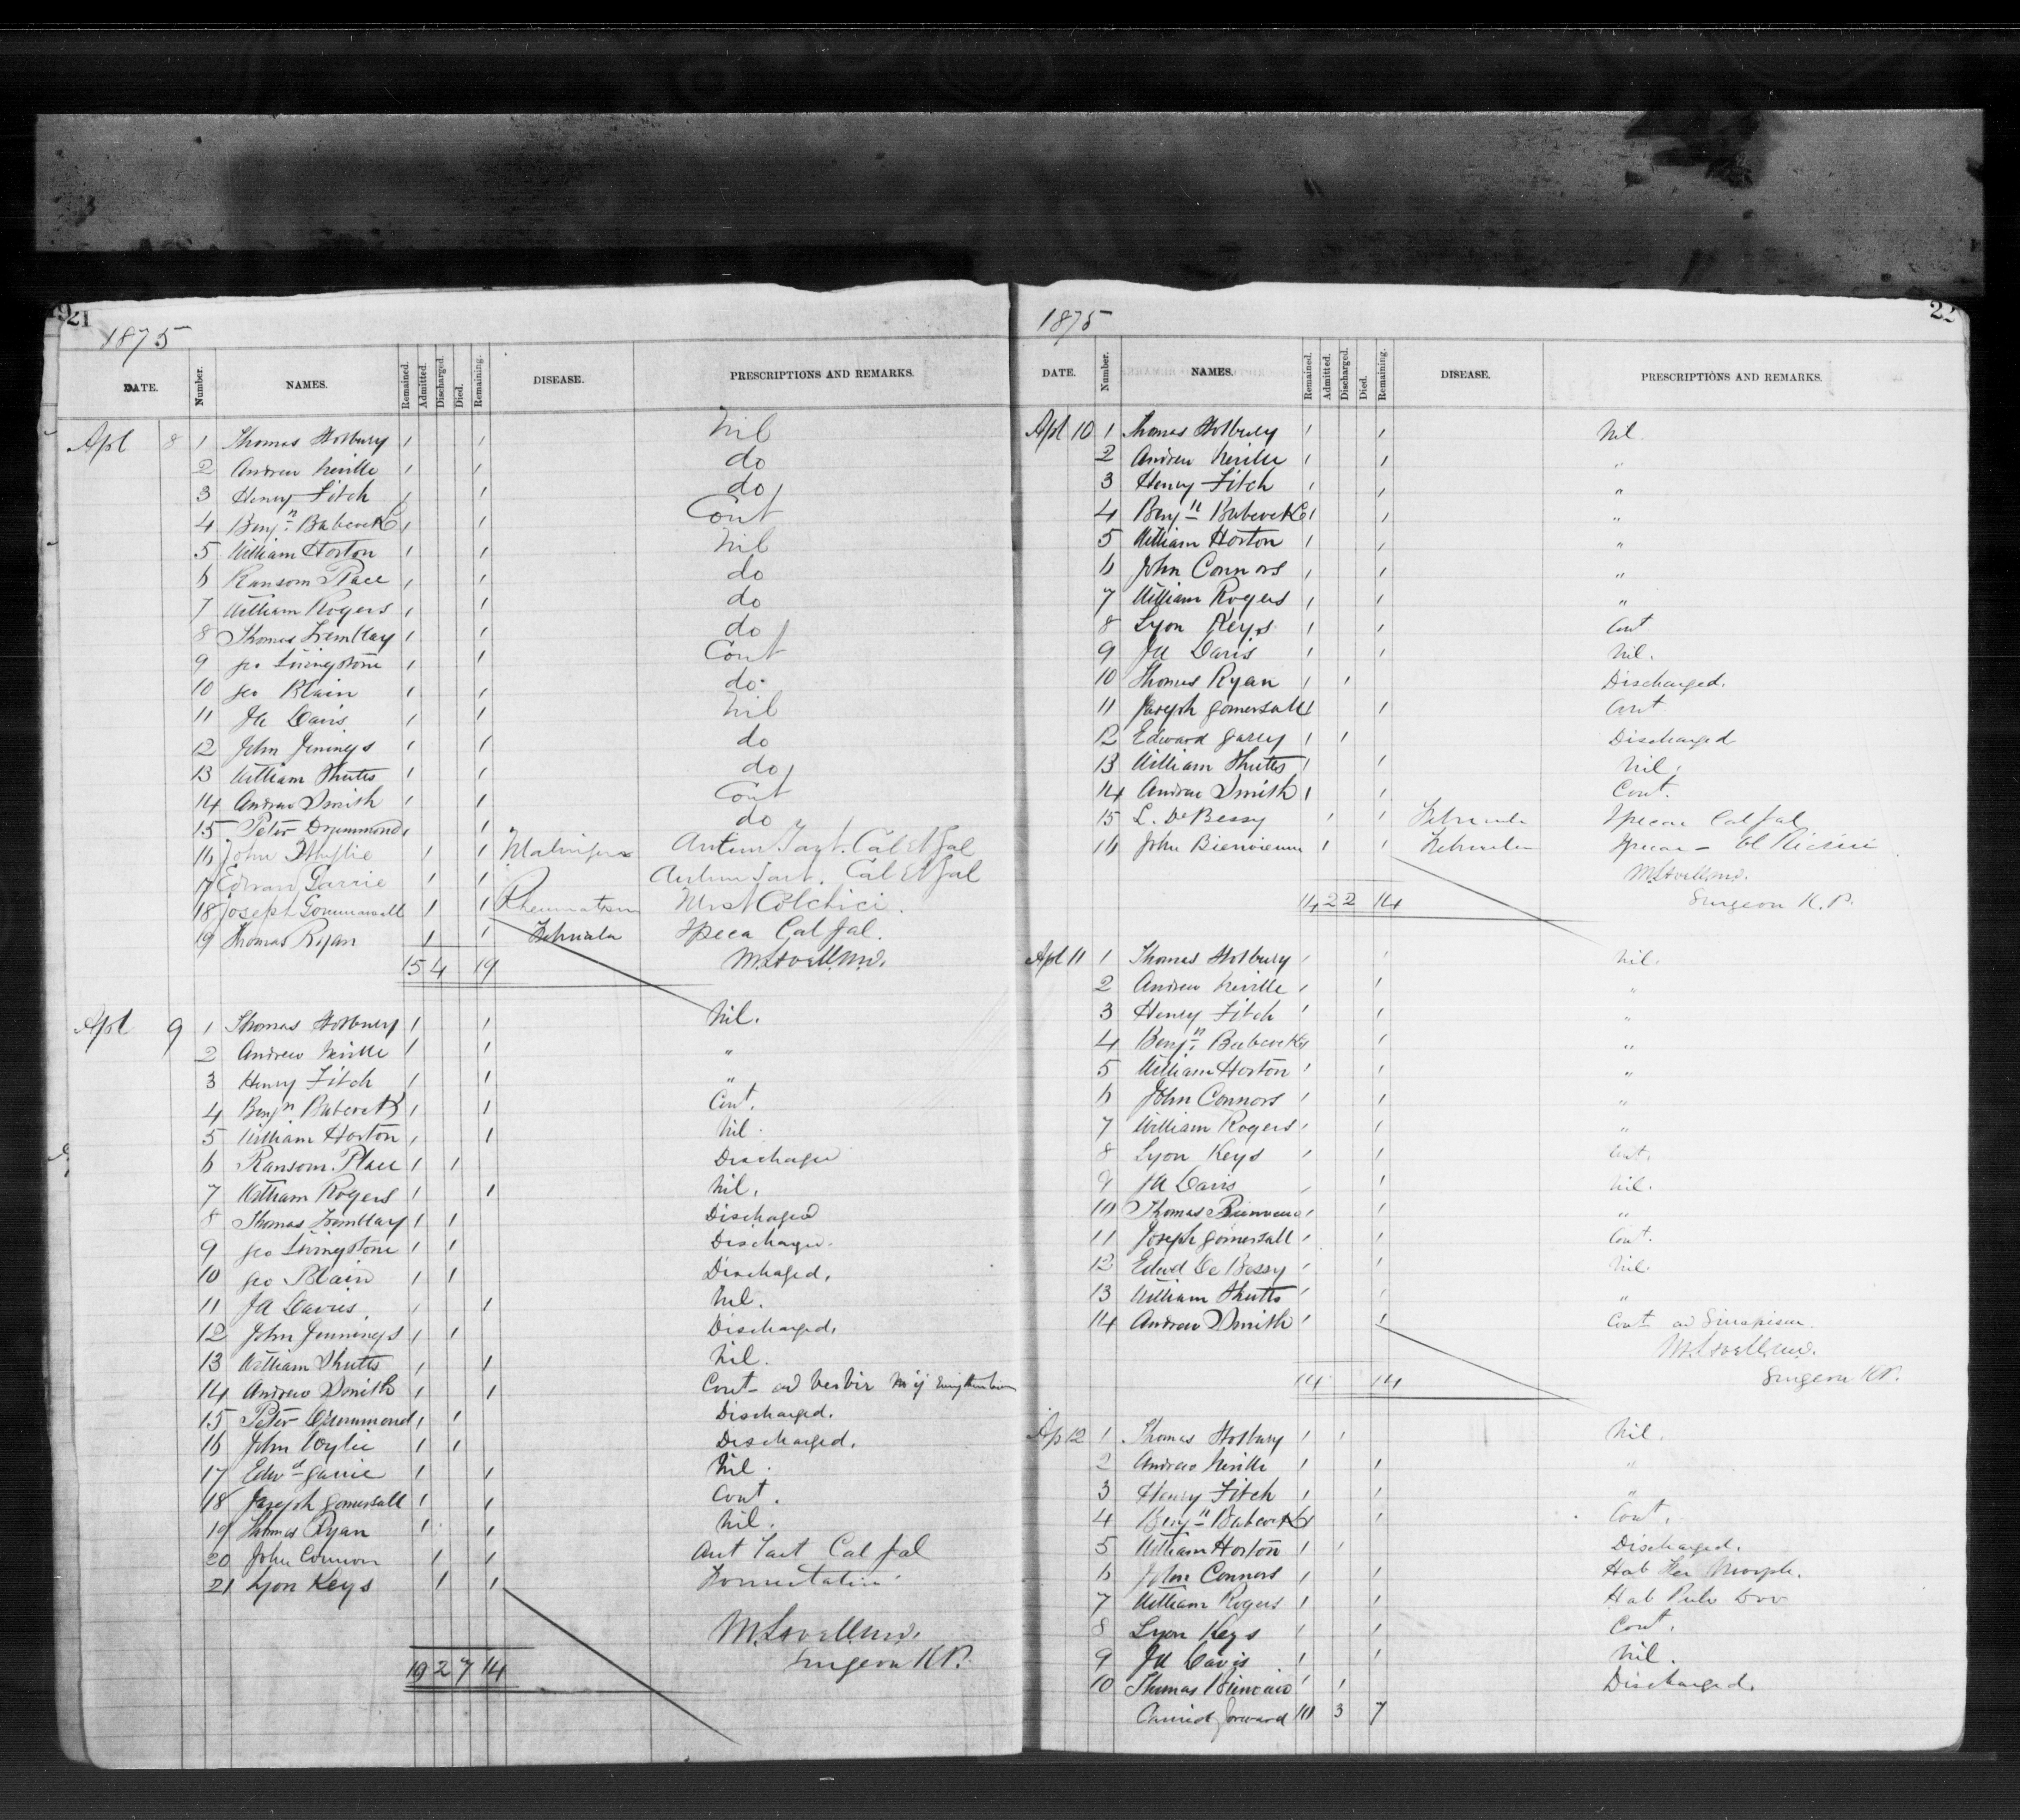 21
1875
DATE. Number. NAMES. Remained. Admitted. Discharged. Died. Remaining. DISEASE. PRESCRIPTIONS AND REMARKS.
Apl 8 1 Thomas Holbury 1 1 Nil
2 Andrew Neville 1 1 do
3 Henry Fitch 1 1 do
4 Benjn Babcock 1 1 Cont
5 William Horton 1 1 Nil
6 Ransom Place 1 1 do
7 William Rogers 1 1 do
8 Thomas Tremblay 1 1 do
9 Geo Livingstone 1 1 Cont
10 Geo Blain 1 1 do
11 JA Davis 1 1 Nil
12 John Jenings 1 1 do
13 William Shutts 1 1 do
14 Andrew Smith 1 1 Cont
15 Peter Drummond 1 1 do
16 John Whylie 1 1 Antim Tart. Cal et Jal
17 Edward Garrie 1 1 Antim Tart. Cal et Jal
18 Joseph 1 1 Rheumatism Colchici.
19 Thomas Ryan 1 1 Febricula Ipeca Cal Jal.
15 4 19 M. Lavell M.D.
Apl 9 1 Thomas Holbury 1 1 Nil.
2 Andrew Neville 1 1 "
3 Henry Fitch 1 1 "
4 Benjn Babcock 1 1 Cont.
5 William Horton 1 1 Nil.
6 Ransom Place 1 1 Discharged
7 William Rogers 1 1 Nil.
8 Thomas Tremblay 1 1 Discharged
9 Geo Livingstone 1 1 Discharged.
10 Geo Blain 1 1 Discharged.
11 JA Davies 1 1 Nil.
12 John Jennings 1 1 Discharged.
13 William Shutts 1 1 Nil.
14 Andrew Smith 1 1 Cont
15 Peter Drummond 1 1 Discharged.
16 John Wylie 1 1 Discharged.
17 Edwd Garrie 1 1 Nil.
18 Joseph Gomersall 1 1 Cont.
19 Thomas Ryan 1 1 Nil.
20 John Connor 1 1 Ant Tart Cal Jal
21 Lyon Keys 1 1
M. Lavell M.D.
19 2 7 14 Surgeon K.P.
22
1875
DATE. Number. NAMES. Remained. Admitted. Discharged. Died. Remaining. DISEASE. PRESCRIPTIONS AND REMARKS.
Apl 10 1 Thomas Holbury 1 1 Nil.
2 Andrew Neville 1 1 "
3 Henry Fitch 1 1 "
4 Benjn Babcock 1 1 "
5 William Horton 1 1 "
6 John Connors 1 1 "
7 William Rogers 1 1 "
8 Lyon Keys 1 1 Cont
9 JA Davis 1 1 Nil.
10 Thomas Ryan 1 1 Discharged.
11 Joseph Gomersall 1 1 Cont
12 Edward Garey 1 1 Discharged
13 William Shutts 1 1 Nil.
14 Andrew Smith 1 1 Cont.
15 L. De Bessy 1 1 Febricula Ipecac Cal Jal
16 John Bienvienu 1 1 Febricula Ipecac - Ol Ricini
M. Lavell M.D.
14 2 2 14 Surgeon K.P.
Apl 11 1 Thomas Holbury 1 1 Nil.
2 Andrew Neville 1 1 "
3 Henry Fitch 1 1 "
4 Benjn Babcock 1 1 "
5 William Horton 1 1 "
6 John Connors 1 1 "
7 William Rogers 1 1 "
8 Lyon Keys 1 1 Cont.
9 JA Davis 1 1 Nil.
10 Thomas Bienvenu 1 1 "
11 Joseph Gomersall 1 1 Cont.
12 Edwd De Bessy 1 1 Nil.
13 William Shutts 1 1 "
14 Andrew Smith 1 1 Cont ad Sinapism.
M. Lavell M.D.
14 14 Surgeon K.P.
Ap 12 1 Thomas Holbury 1 1 Nil.
2 Andrew Neville 1 1 "
3 Henry Fitch 1 1 "
4 Benjn Babcock 1 1 Cont.
5 William Horton 1 1 Discharged.
6 John Connors 1 1 Hab Morph.
7 William Rogers 1 1 Hab Pulv Dov
8 Lyon Keys 1 1 Cont.
9 JA Davis 1 1 Nil.
10 Thomas 1 1 Discharged.
Carried forward 10 3 7